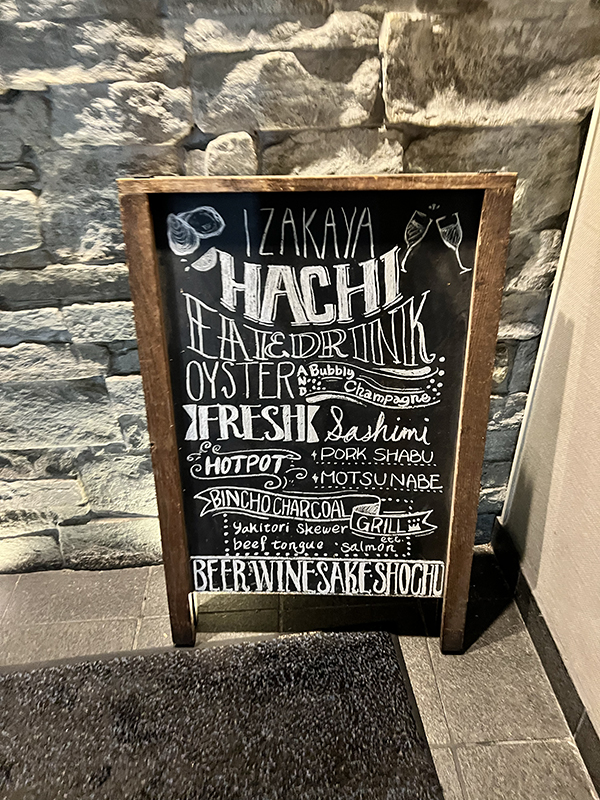 IZAKAYA
HACHI
EAT & DRINK
OYSTER AND Bubbly Champagne
FRESH Sashimi
HOTPOT
PORK SHABU
MOTSUNABE
BINCHO CHARCOAL GRILL
Yakitori skewer etc.
beef tongue salmon
BEER WINE SAKE SHOCHU